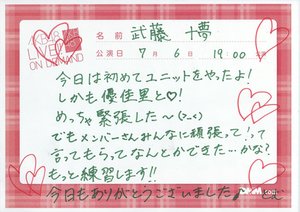 LIVE!!
ON DEMAND
名前 武藤 十夢
公演日 7月6日 19:00
今日は初めてユニットをやったよ!
しかも優佳里と♡!
めっちゃ緊張した〜(>_<)
でもメンバーさんみんなに頑張って!って
言ってもらってなんとかできた…かな?
もっと練習します!!
今日もありがとうございました♪